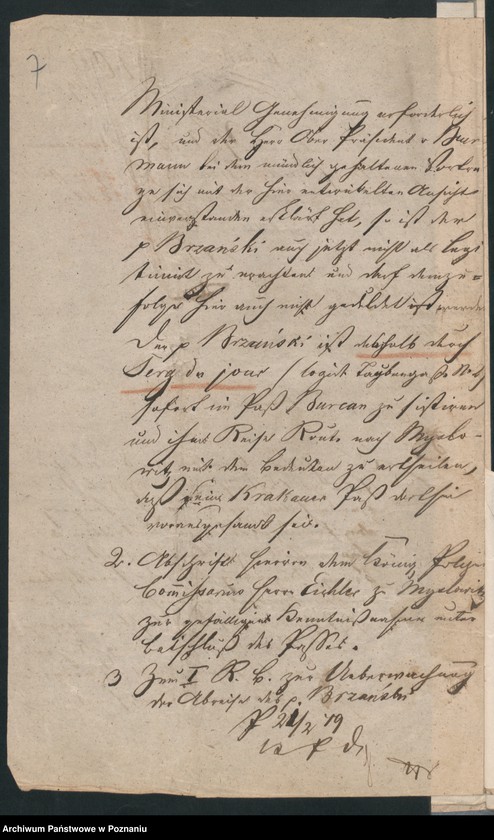 7
Ministerial Genehmigung erforderlich
ist, und der Herr Ober Präsident v Beur
mann bei dem mündlich gehaltenen Vortra
ge sich mit der hier entwickelten Ansicht
einverstanden erklärt hat, so ist der
p Brzański auch jetzt nicht als legi
timirt zu erachten und darf demzu=
folge hier auch nicht geduldet werden
Der p Brzański ist deshalb durch
Serg du jour (logirt
sofort im Paß Bureau zu sistiren
und ihm Reise Route nach Myslo-
witz mit dem Bedeuten zu ertheilen,
daß sein Krakauer Paß dorthin
vorausgesandt sei.
2. Abschrift hiervon dem Königl Polizei
Commissarius Herrn Eichler zu Myslowitz
zur gefälligen Kenntnißnahme unter
Beischluß des Passes.
3 Zum I R. B. zur Ueberwachung
der Abreise des p. Brzański
P 21/2 49
Archiwum Państwowe w Poznaniu